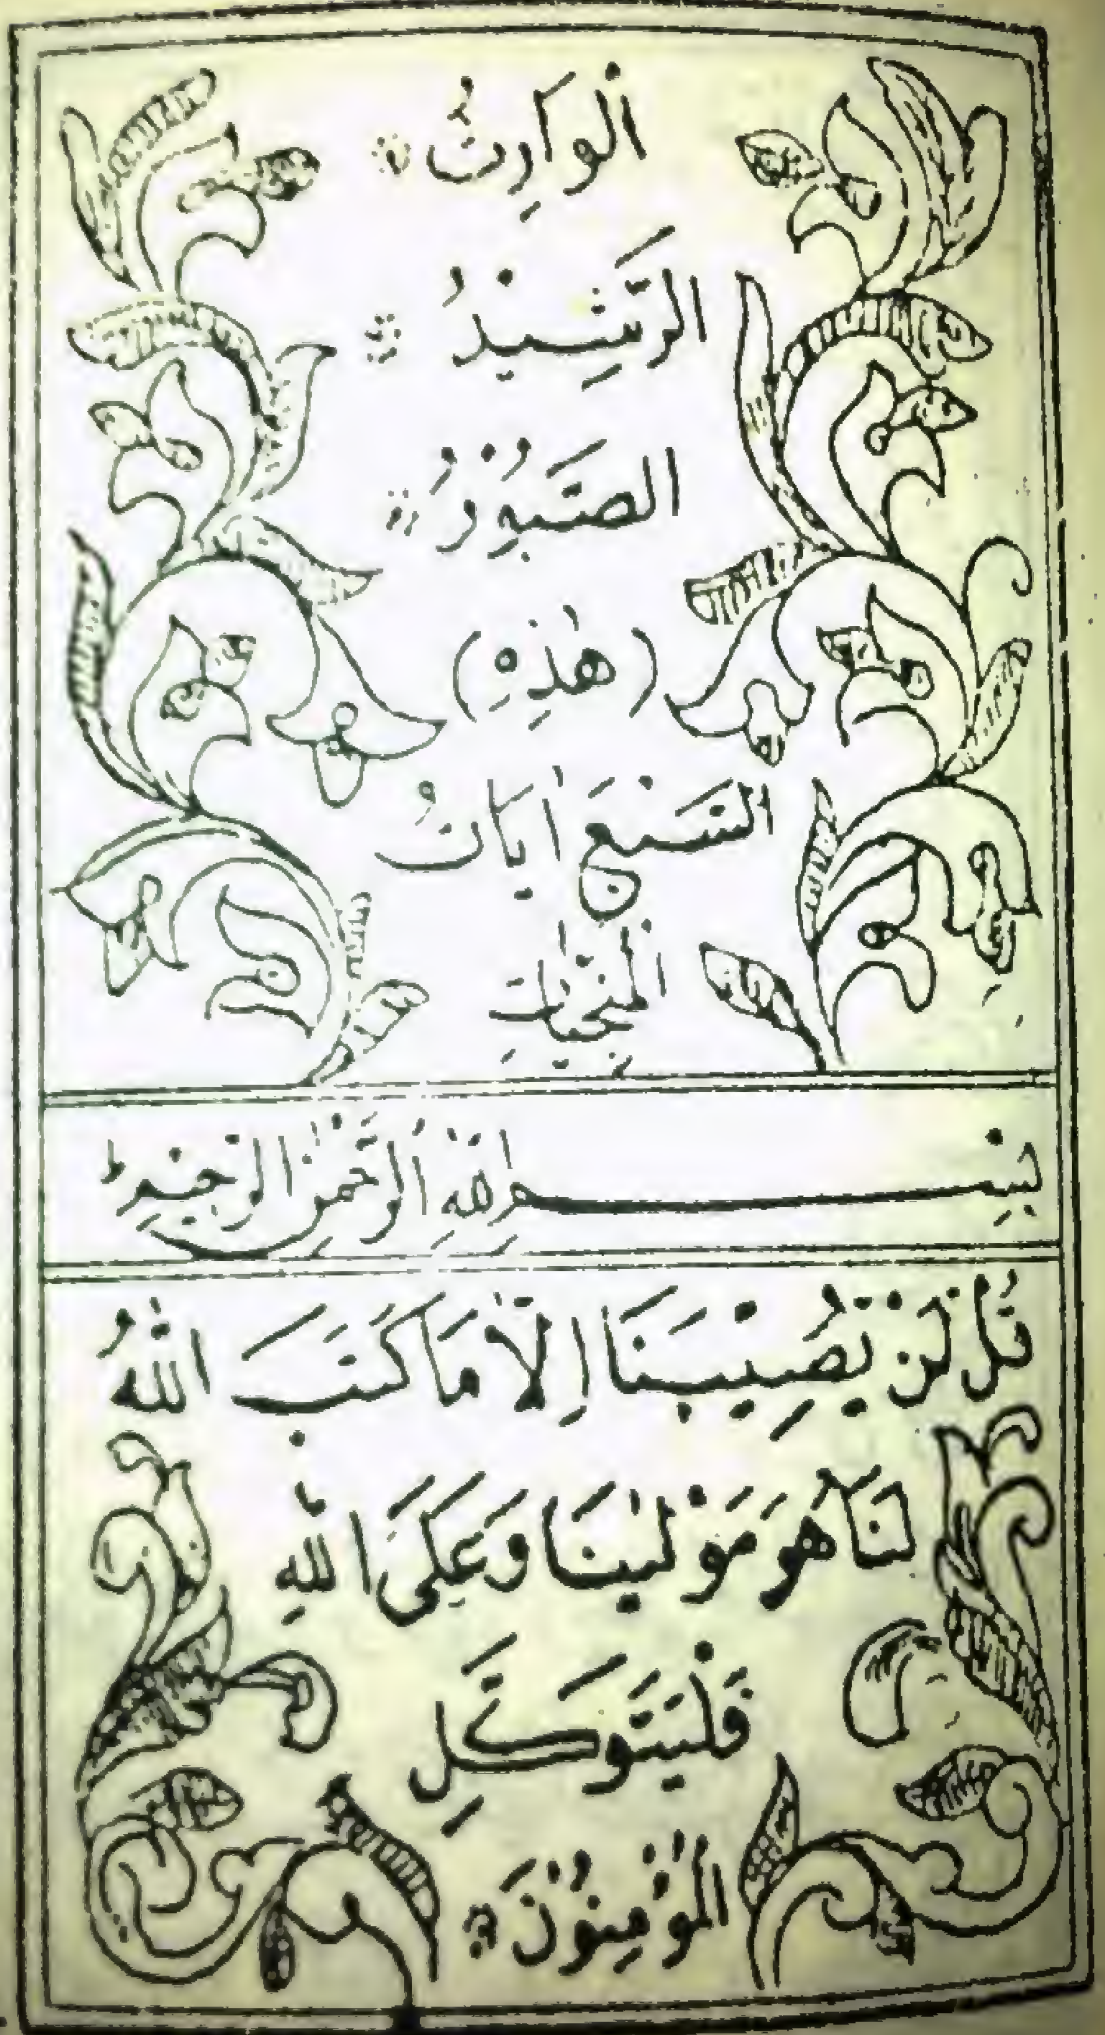 اَلْوَارِثُ
الرَّشِيْدُ
الصَّبُوْرُ
(هٰذِهِ)
السَّبْعَ اٰيَاتُ
الْمُنْجِيَاتِ
بِسْمِ اللّٰهِ الرَّحْمٰنِ الرَّحِيْمِ ط
قُلْ لَنْ يُصِيْبَنَا اِلَّا مَا كَتَبَ اللّٰهُ
لَنَا هُوَ مَوْلٰينَا وَعَلَى اللّٰهِ
فَلْيَتَوَكَّلِ
الْمُؤْمِنُوْنَ